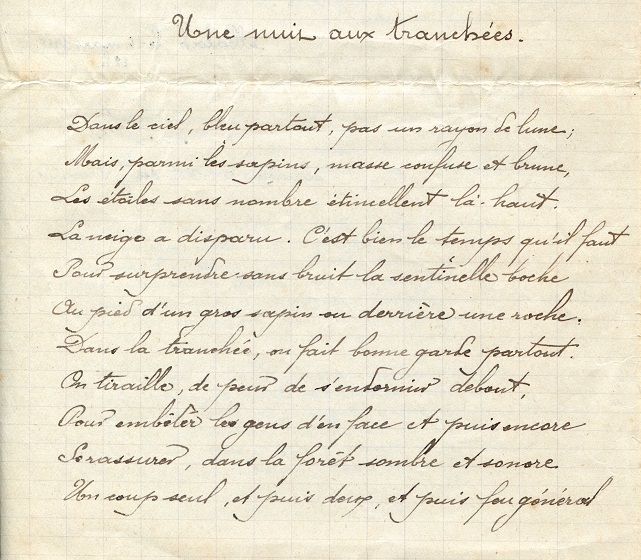 Une nuit aux tranchées.
Dans le ciel, bleu partout, pas un rayon de lune;
Mais, parmi les sapins, masse confuse et brune,
Les étoiles sans nombre étincellent là-haut.
La neige a disparu. C'est bien le temps qu'il faut
Pour surprendre sans bruit la sentinelle boche
Au pied d'un gros sapin ou derrière une roche.
Dans la tranchée, on fait bonne garde partout.
On tiraille, de peur de s'endormir debout,
Pour embêter les gens d'en face et puis encore
Se rassurer, dans la forêt sombre et sonore
Un coup seul, et puis deux, et puis feu général